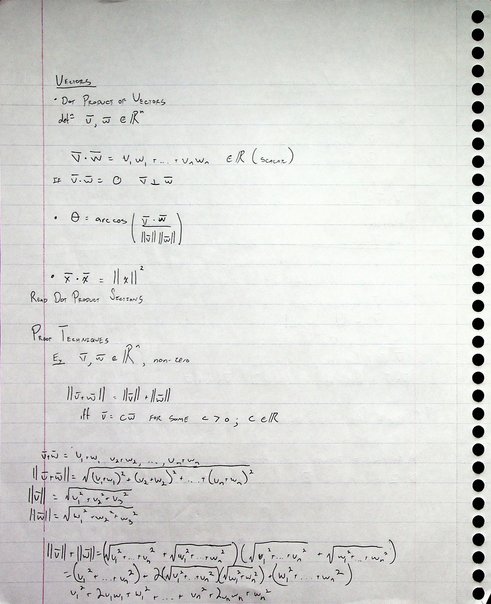 VECTORS
• DOT PRODUCT OF VECTORS
def= v̄, w̄ ∈ ℝⁿ
v̄ · w̄ = v₁w₁ + ... + vₙwₙ ∈ ℝ (SCALAR)
IF v̄ · w̄ = 0 v̄ ⊥ w̄
• θ = arccos ( v̄ · w̄ / ||v̄|| ||w̄|| )
• x̄ · x̄ = ||x||²
READ DOT PRODUCT SECTIONS
PROOF TECHNIQUES
Ex v̄, w̄ ∈ ℝⁿ, non-zero
||v̄+w̄|| = ||v̄|| + ||w̄||
iff v̄ = cw̄ FOR SOME c > 0; c ∈ ℝ
v̄+w̄ = v₁+w₁, v₂+w₂, ..., vₙ+wₙ
||v̄+w̄|| = √((v₁+w₁)² + (v₂+w₂)² + ... + (vₙ+wₙ)²)
||v̄|| = √(v₁² + v₂² + v₃²)
||w̄|| = √(w₁² + w₂² + w₃²)
||v̄|| + ||w̄|| = (√(v₁² + ... + vₙ²) + √(w₁² + ... + wₙ²)) (√(v₁² + ... + vₙ²) + √(w₁² + ... + wₙ²))
= (v₁² + ... + vₙ²) + 2(√(v₁² + ... + vₙ²))(√(w₁² + ... + wₙ²)) + (w₁² + ... + wₙ²)
v₁² + 2v₁w₁ + w₁² + ... + vₙ² + 2vₙwₙ + wₙ²